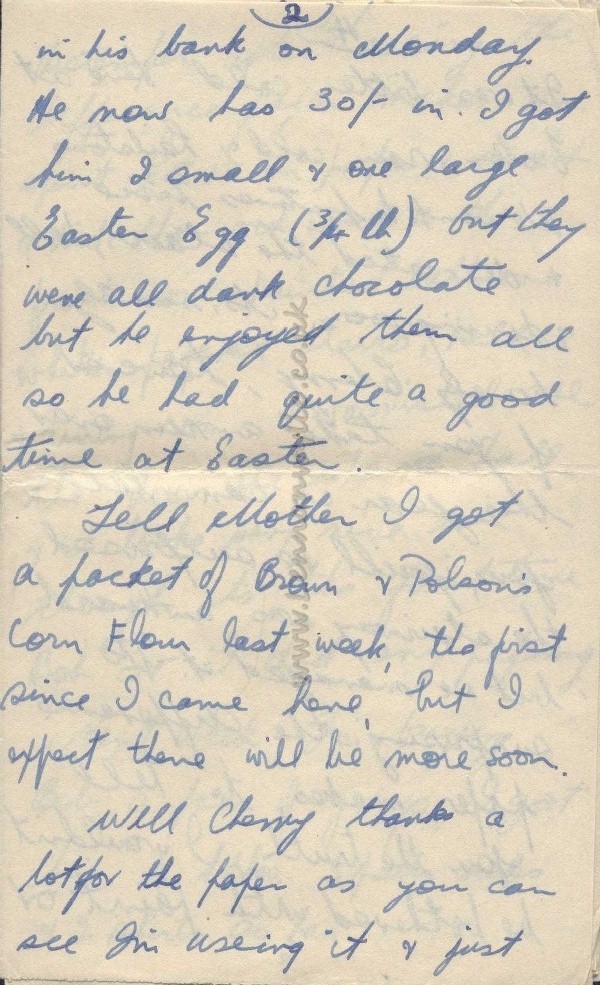 2
in his bank on Monday.
He now has 30/- in. I got
him 2 small & one large
Easter Egg (3/4 lb) but they
were all dark chocolate
but he enjoyed them all
so he had quite a good
time at Easter.
Tell Mother I got
a packet of Brown & Polson's
Corn Flour last week, the first
since I came here, but I
expect there will be more soon.
Well Cherry thanks a
lot for the paper as you can
see I'm useing it & just